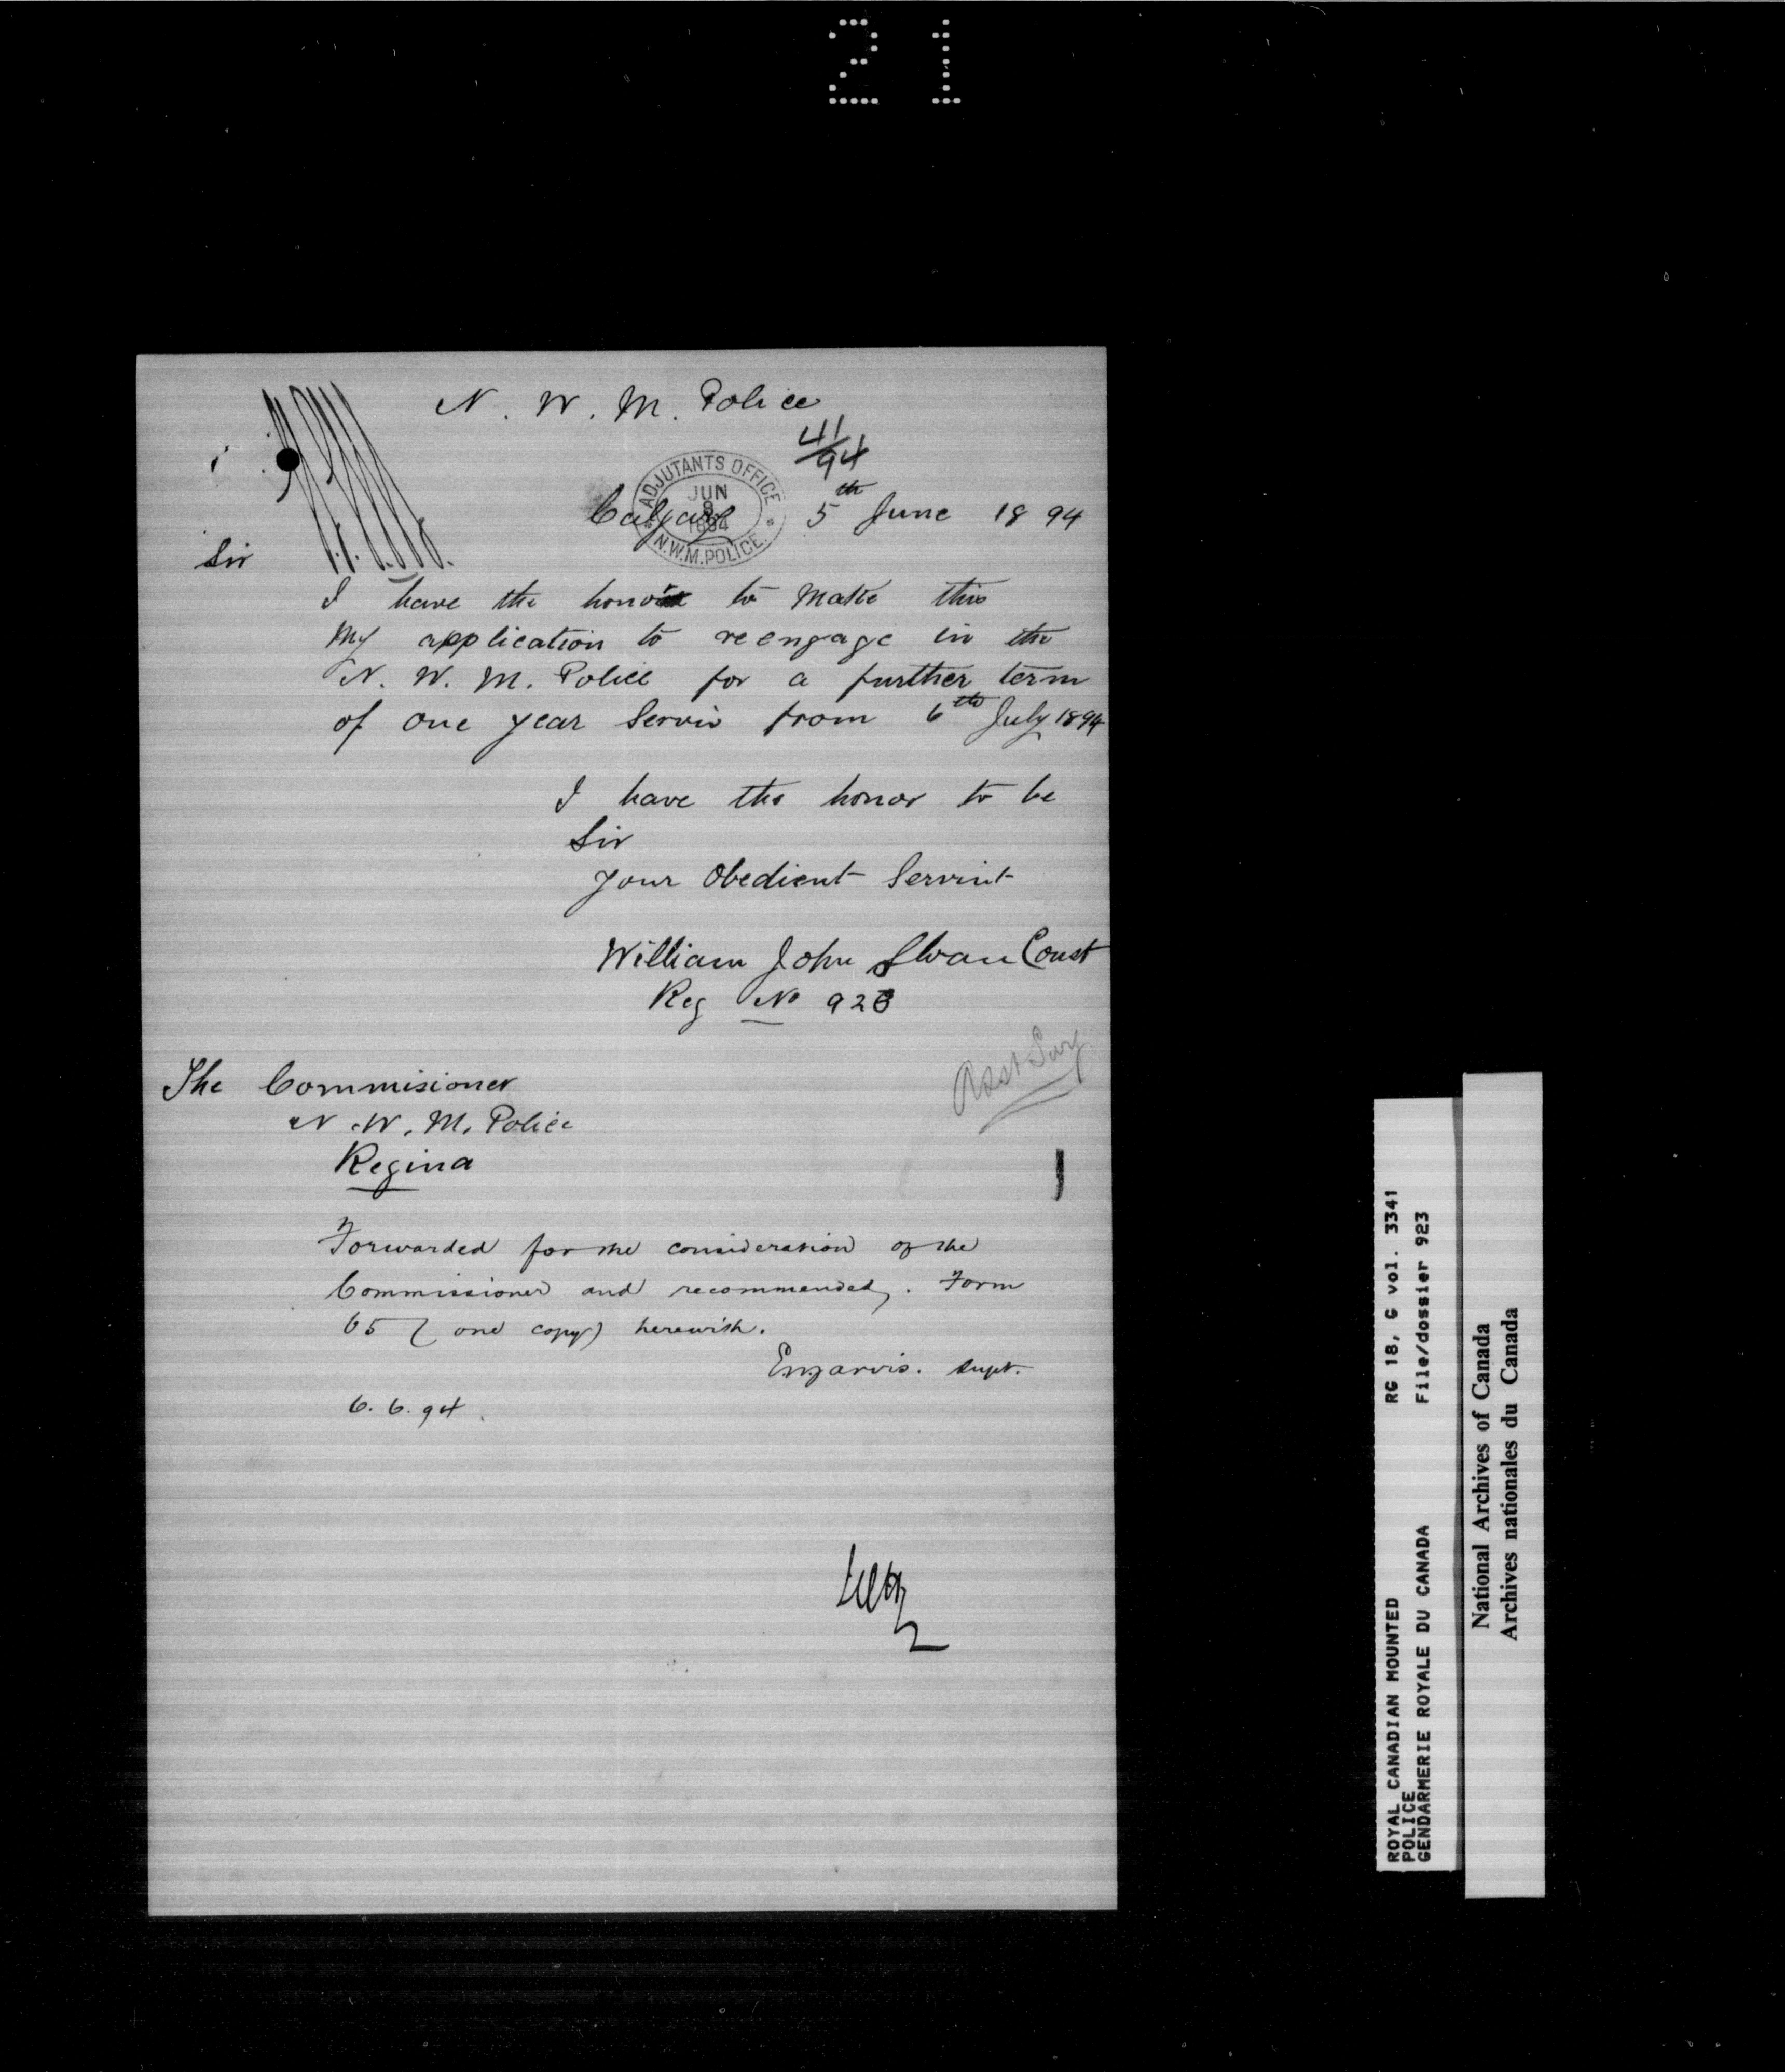 21
N. W. M. Police
41/94
ADJUTANTS OFFICE
JUN
8
1894
N.W.M. POLICE.
Calgary 5th June 1894
Sir
I have the honor to make this
my application to reengage in the
N. W. M. Police for a further term
of one year Servis from 6th July 1894
I have the honor to be
Sir
your Obedient Servint
William John Sloan Const
Reg No 923
Asst Surg
The Commisioner
N. W. M. Police
Regina
Forwarded for the consideration of the
Commissioner and recommended. Form
65 (one copy) herewith.
EWJarvis. Supt.
6. 6. 94.
ROYAL CANADIAN MOUNTED
POLICE
GENDARMERIE ROYALE DU CANADA
RG 18, G vol. 3341
File/dossier 923
National Archives of Canada
Archives nationales du Canada